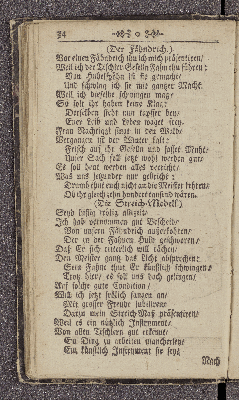 34
(Der Fähndrich.)
Vor einen Fähndrich thu ich mich präsentiren/
Weil ich der Tischler-Gsellen Fahn thu führen:
Von Hubelspähn ist sie gemacht
Und schwing ich sie mit gantzer Macht.
Weil ich dieselbe schwingen mag/
So solt ihr haben keine Klag;
Derselben steht nun tapffer bey
Euer Leib und Leben waget frey.
Frau Nachtigal singt in den Walde
Vergangen ist der Winter kalt:
Frisch auf ihr Gesellen und fasset Muth/
Unser Sach soll jetzt wohl werden gut.
Es soll heut werden alles verricht/
Was uns jetzunder nur gebricht:
Drumb thut euch nicht an die Meister kehren/
Ob ihr gleich zehn hundert tausend wären.
(Die Streich-Modell.)
Seyd lustig frölich allzeit/
Ich hab vernommen gut Bescheid/
Von unsern Fähndrich auserkohren/
Der zu der Fahnen Huld geschworen/
Daß Er sich ritterlich will halten/
Den Meister gantz das Licht absprechen;
Sein Fahne thut Er künstlich schwingen/
Trotz hier/ es soll uns doch gelingen/
Auf solche gute Condition/
Will ich jetzt frölich fangen an/
Mit grosser Freude jubiliren
Darzu mein Streich-Maß präsentiren/
Weil es ein nützlich Instrument/
Von alten Tischlern gut erkennt/
Ein Ding zu arbeiten mancherley
Ein künstlich Instrument sie sey/
Nach